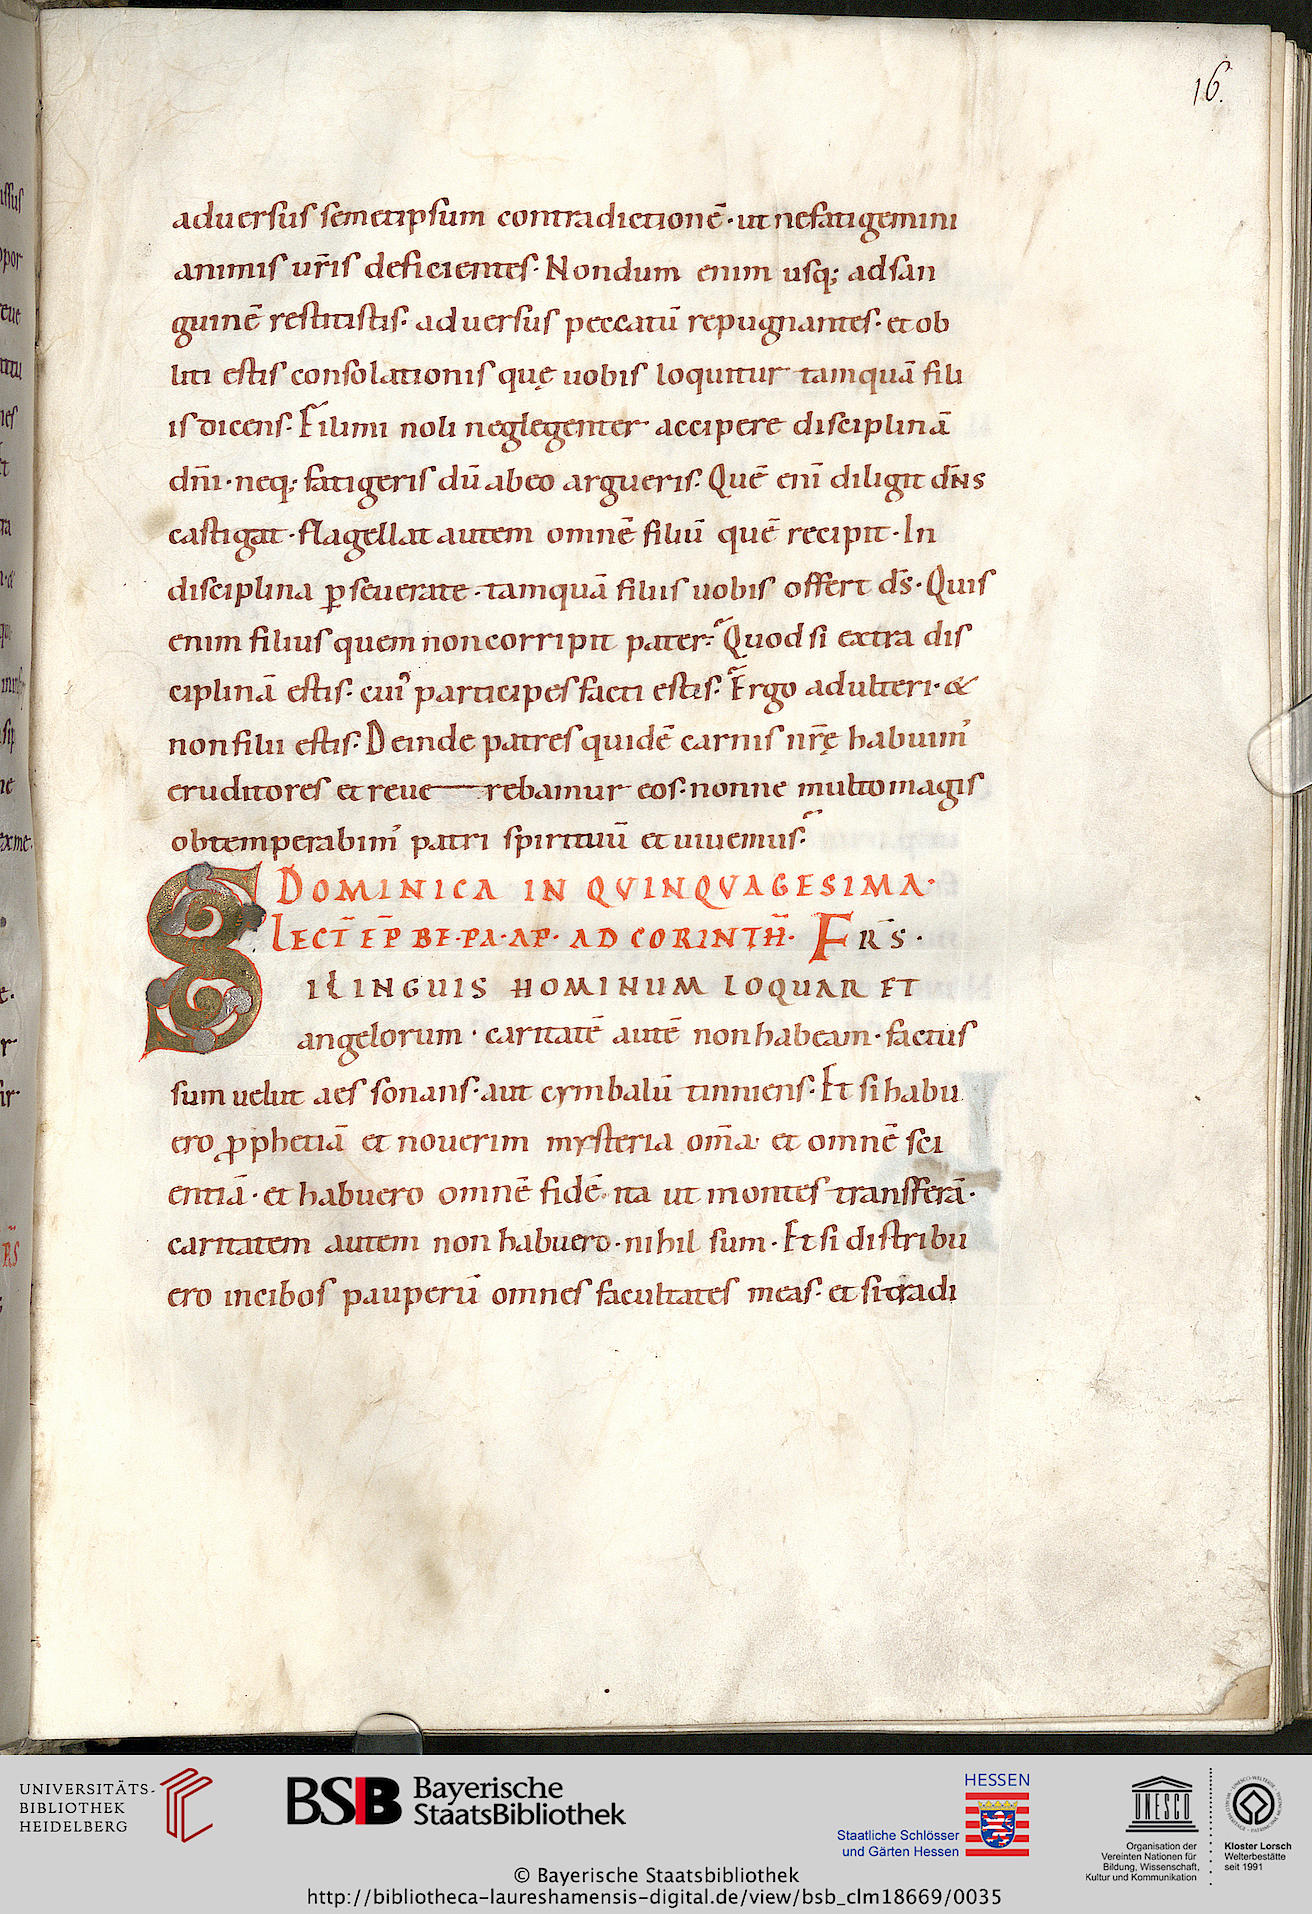 16.
aduersus semetipsum contradictionē· ut ne fatigemini
animis ur̄is deficientes· Nondum enim usq; ad san
guinē restitistis· aduersus peccatū repugnantes· et ob
liti estis consolationis quę uobis loquitur tamquā fili
is dicens· Fili mi noli neglegenter accipere disciplinā
dn̄i· neq; fatigeris dū ab eo argueris· Quē eni̅ diligit dn̄s
castigat· flagellat autem omnē filiū quē recipit· In
disciplina ꝑseuerate· tamquā filiis uobis offert ds̄· Quis
enim filius quem non corripit pater· Quod si extra dis
ciplinā estis· cui᾿ participes facti estis· Ergo adulteri· &
non filii estis· Deinde patres quidē carnis nr̄ę habuim᾿
eruditores et reue rebamur eos· nonne multo magis
obtemperabim᾿ patri spirituū et uiuemus·
DOMINICA IN QVINQVAGESIMA·
LECT̄ EP̄ BE·PA·AP· AD CORINTH̄· FRS̄·
SI LINGUIS HOMINUM LOQUAR ET
angelorum· caritatē autē non habeam· factus
sum uelut aes sonans· aut cymbalū tinniens· Et si habu
ero ꝓphetiā et nouerim mysteria om̄a et omnē sci
entiā· et habuero omnē fidē ita ut montes transferā·
caritatem autem non habuero· nihil sum· Et si distribu
ero in cibos pauperū omnes facultates meas· et si tradi
UNIVERSITÄTS-
BIBLIOTHEK
HEIDELBERG
BSB Bayerische
StaatsBibliothek
HESSEN
Staatliche Schlösser
und Gärten Hessen
UNESCO
Organisation der
Vereinten Nationen für
Bildung, Wissenschaft,
Kultur und Kommunikation
Kloster Lorsch
Welterbestätte
seit 1991
© Bayerische Staatsbibliothek
http://bibliotheca-laureshamensis-digital.de/view/bsb_clm18669/0035